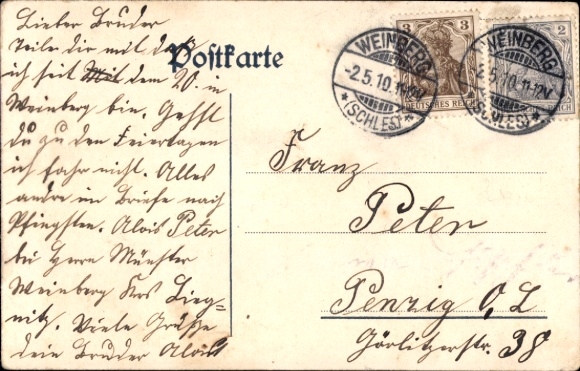 Lieber Bruder
Teile dir mit daß
ich seit Mit dem 20. in
Weinberg bin. Gehst
du zu den Feiertagen
ich fahr nicht. Alles
andre im Briefe nach
Pfingsten. Alois Peter
bei Herrn Münster
Weinberg Krs Lieg-
nitz. Viele Grüße
dein Bruder Alois
Postkarte
3 3
DEUTSCHES REICH
2
WEINBERG
-2.5.10.11-12V
*(SCHLES)*
WEINBERG
2.5.10.11-12V
(SCHLES)*
Franz
Peter
Penzig O,L
Görlitzerstr. 38